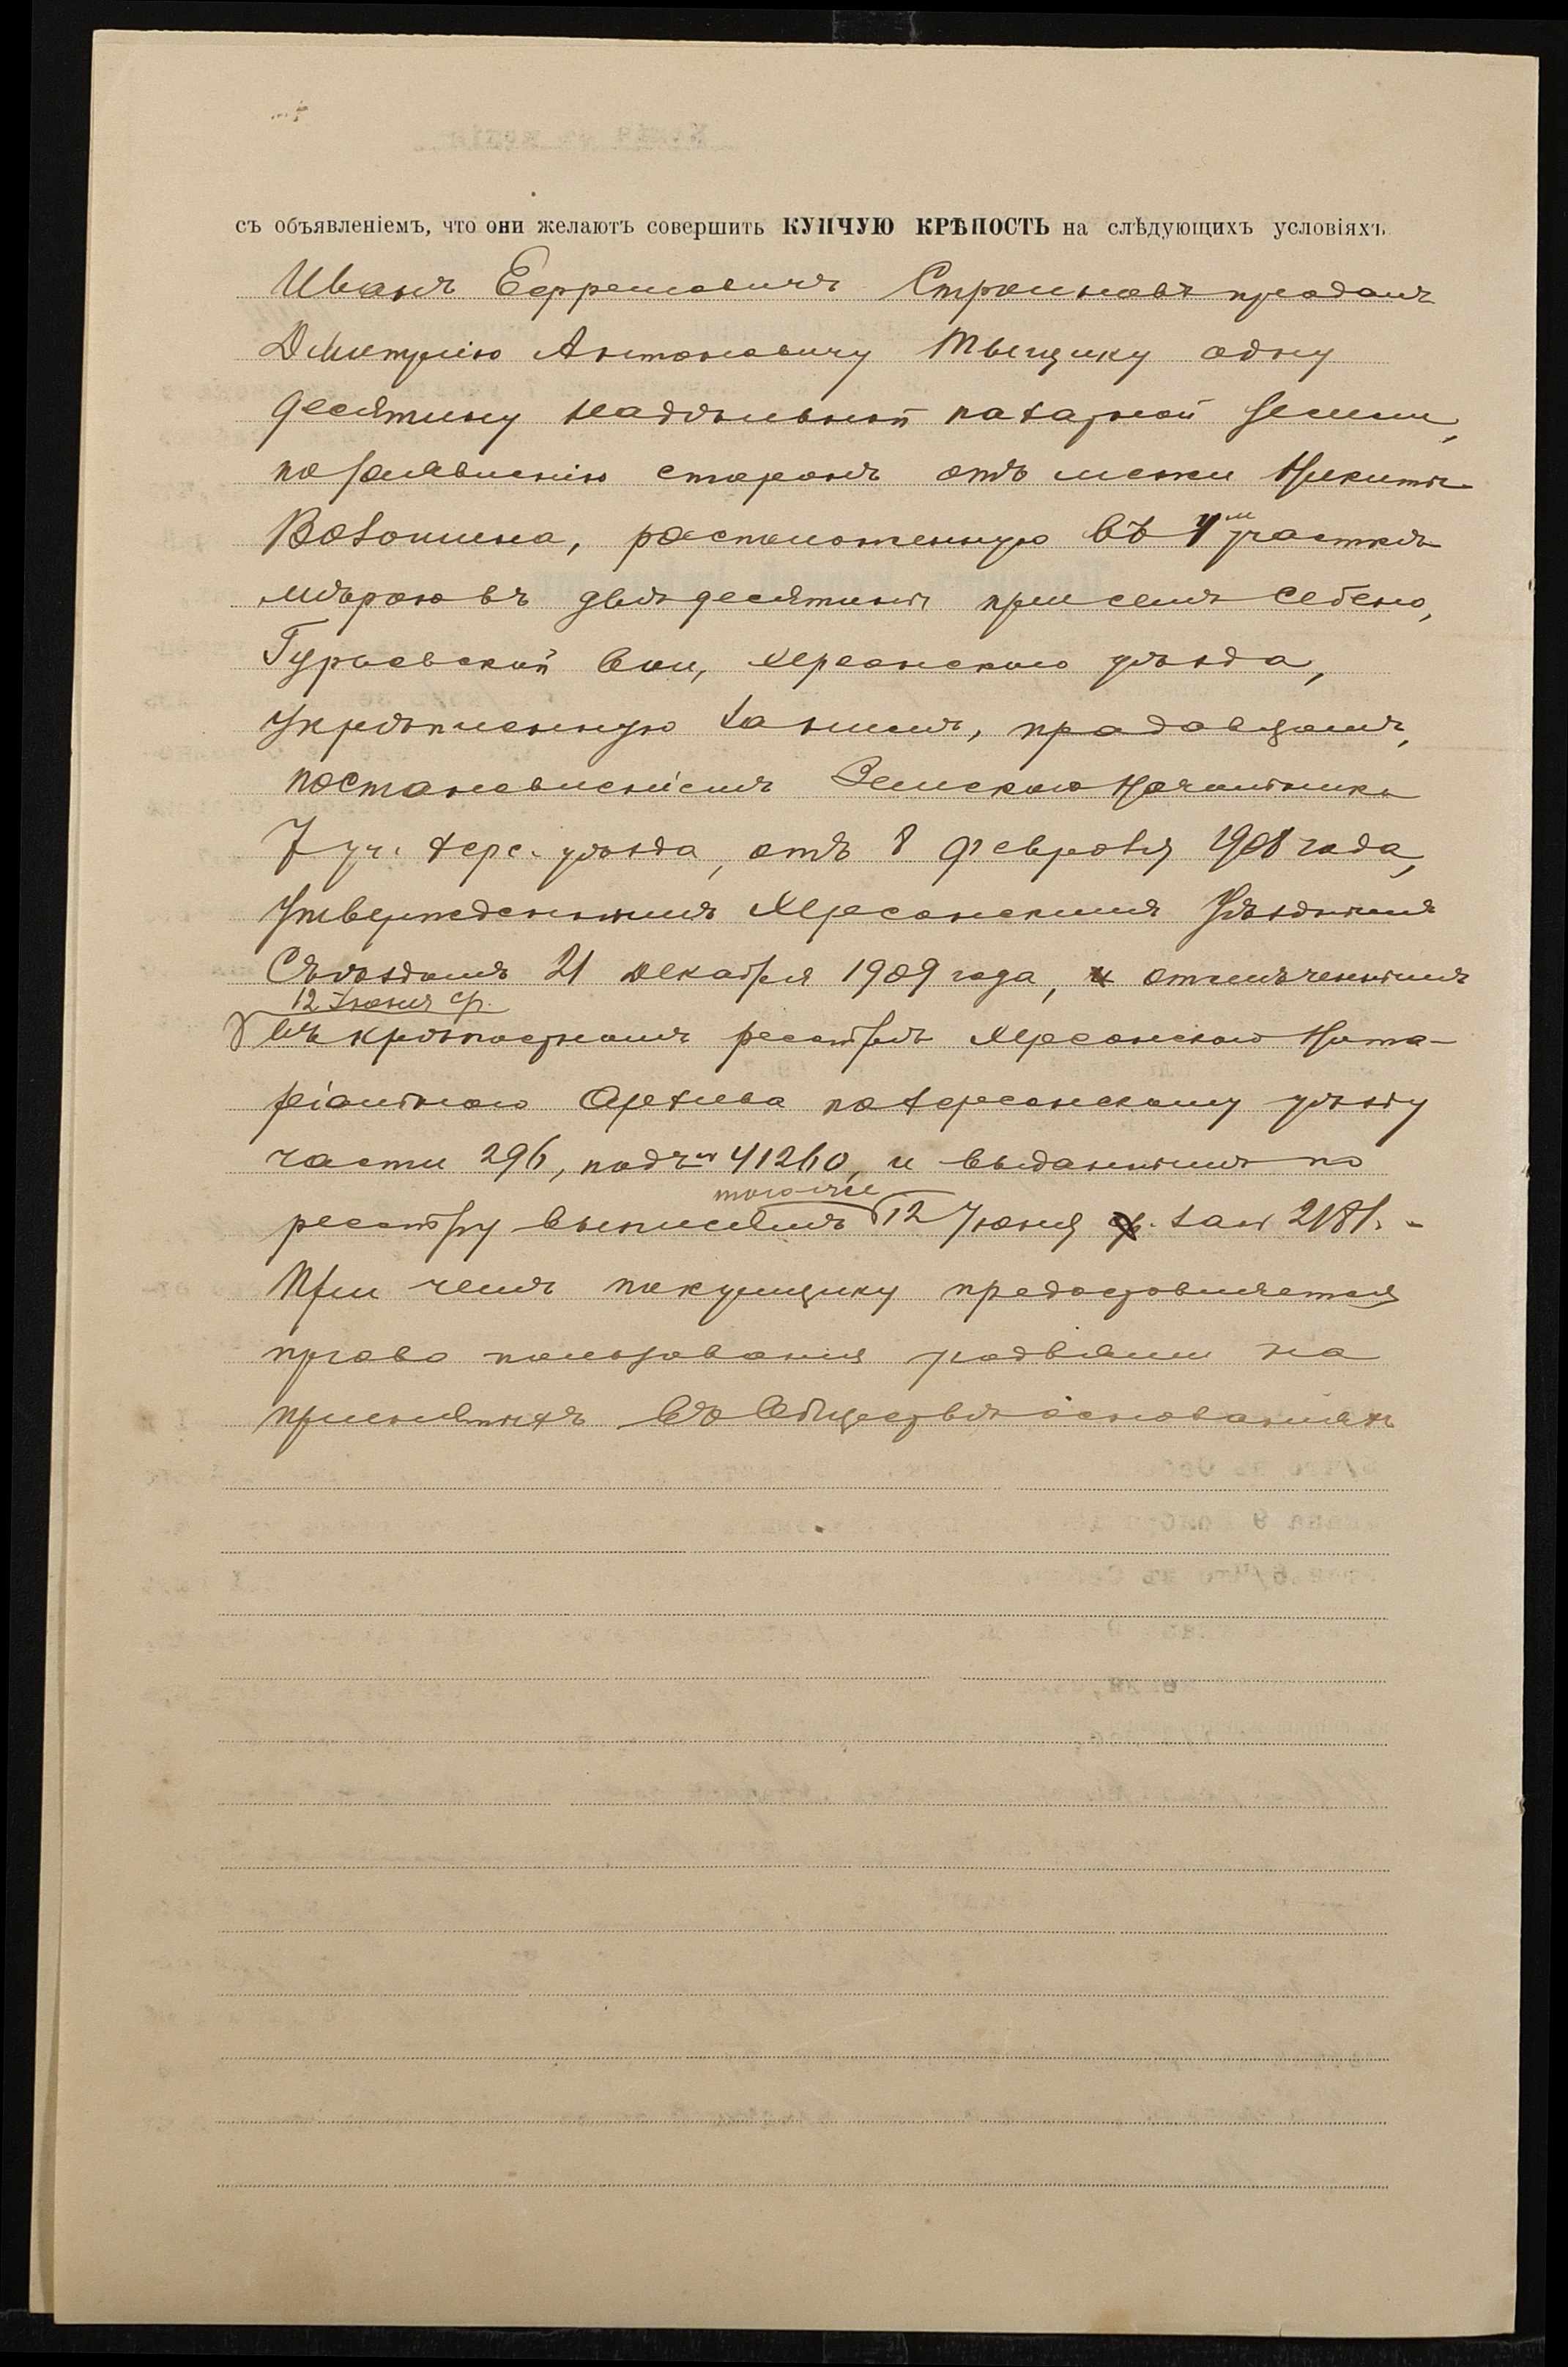 съ объявленіемъ, что они желаютъ совершить КУПЧУЮ КРѢПОСТЬ на слѣдующихъ условіяхъ
Иванъ Ефремовичъ продалъ
Дмитрію Антоновичу Тыщику одну
десятину надѣльной пахатной земли,
по заявленію сторонъ отъ межи Никиты
Волошина, расположенную въ участкѣ
мѣрою въ двѣ десятины при селѣ
Гурьевской вол, Херсонскаго уѣзда,
укрѣпленную за нимъ, продавцомъ,
постановленіемъ Земскаго Начальника
7 уч. Херс. уѣзда, отъ 8 февраля 1908 года,
утвержденнымъ Херсонскимъ Уѣзднымъ
Съѣздомъ 21 декабря 1909 года, и отмѣченнымъ
12 Іюня с/г.
въ крѣпостномъ реестрѣ Херсонскаго Нота-
ріальнаго Архива по Херсонскому уѣзду
части 296, подъ № 41260, и выданнымъ по
того-же
реестру выписямъ 12 Іюня с/г. за № 2181.-
При чемъ покупщику предоставляется
право пользованія на
принятыхъ въ Обществѣ основаніяхъ